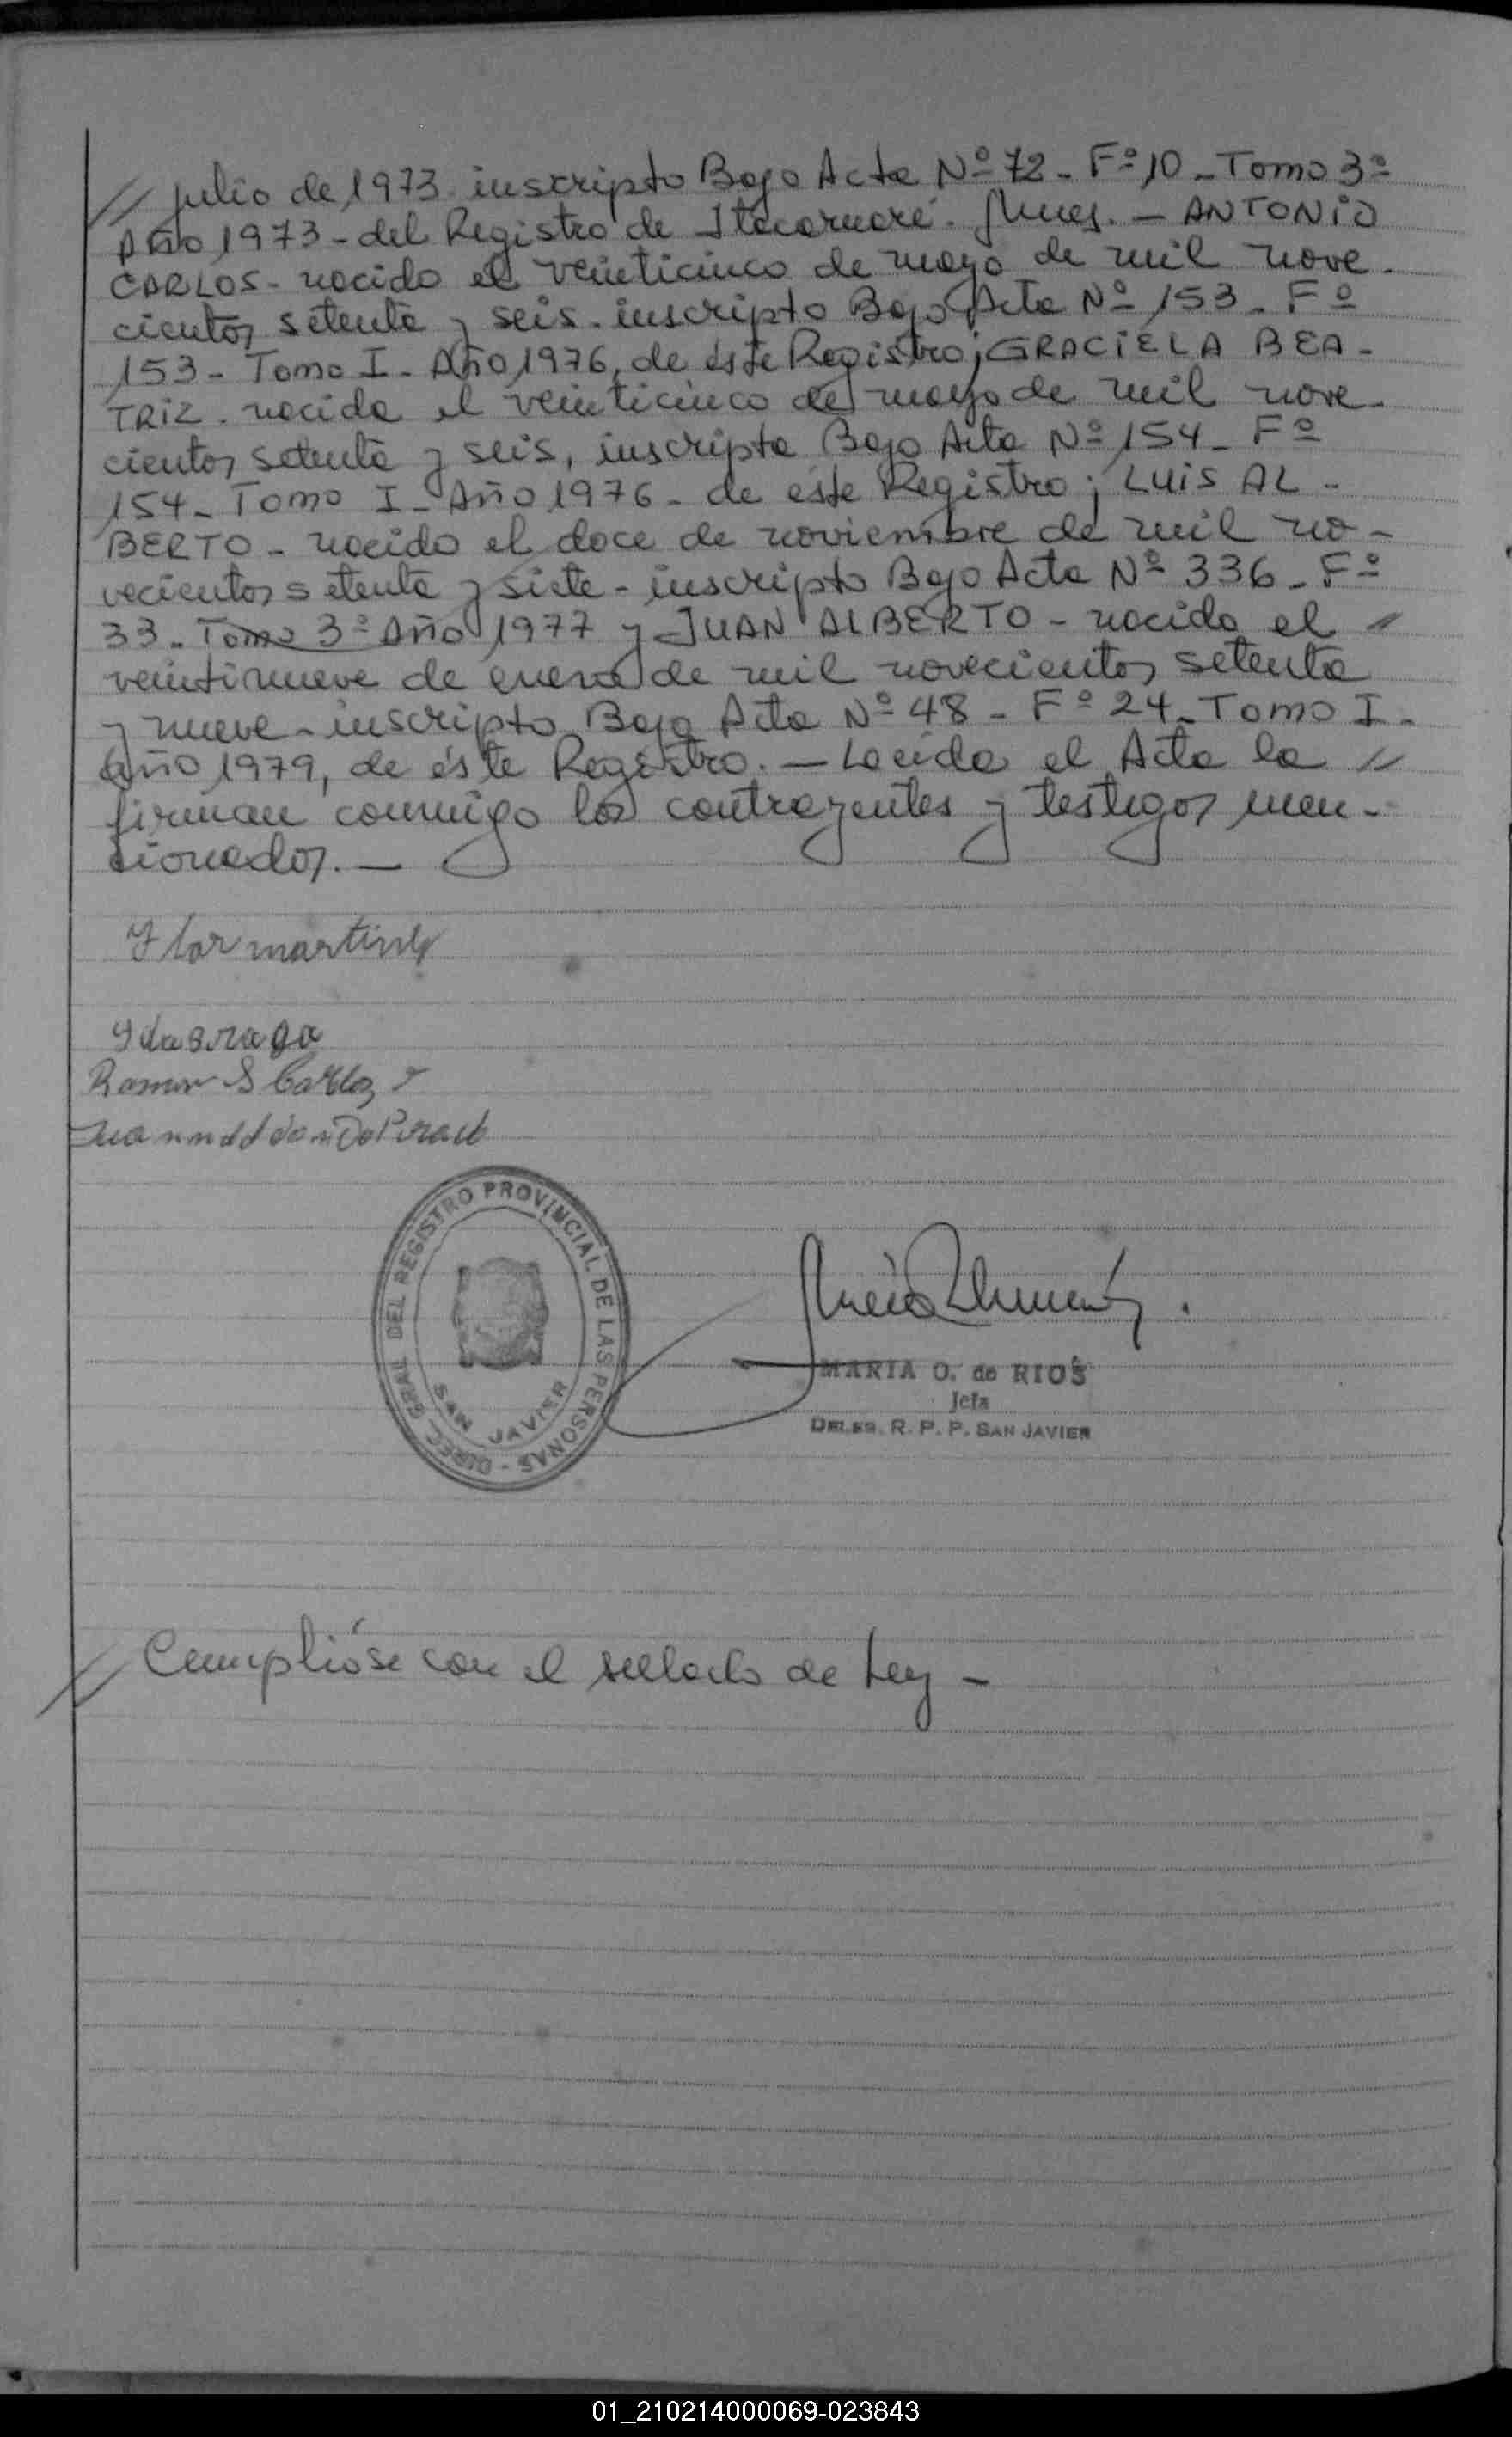 // julio de 1973. inscripto Bajo Acta Nº 72 - Fº 10 - Tomo 3º
Año 1973 - del Registro de Itacaruaré. Mnes. - ANTONIO
CARLOS - nacido el veinticinco de mayo de mil nove-
cientos setenta y seis. inscripto Bajo Acta Nº 153 - Fº
153 - Tomo I - Año 1976, de éste Registro; GRACIELA BEA-
TRIZ. nacida el veinticinco de mayo de mil nove-
cientos setenta y seis, inscripta Bajo Acta Nº 154 - Fº
154 - Tomo I - Año 1976 - de éste Registro; LUIS AL-
BERTO - nacido el doce de noviembre de mil no-
vecientos setenta y siete - inscripto Bajo Acta Nº 336 - Fº
33 - Tomo 3º Año 1977 y JUAN ALBERTO - nacido el //
veintinueve de enero de mil novecientos setenta
y nueve - inscripto Bajo Acta Nº 48 - Fº 24 - Tomo I -
año 1979, de éste Registro. - Leida el Acta la //
firman conmigo los contrayentes y testigos men-
cionados. -
Flor martinez
Ida Braga
Ramon S Carlos
DIREC. GRAL. DEL REGISTRO PROVINCIAL DE LAS PERSONAS -
SAN JAVIER
MARIA O. de RIOS
Jefa
DELEG. R. P. P. SAN JAVIER
// Cumplióse con el sellado de Ley -
01_210214000069-023843